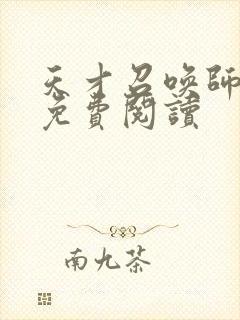 天才召喚師
免費閱讀
南九茶